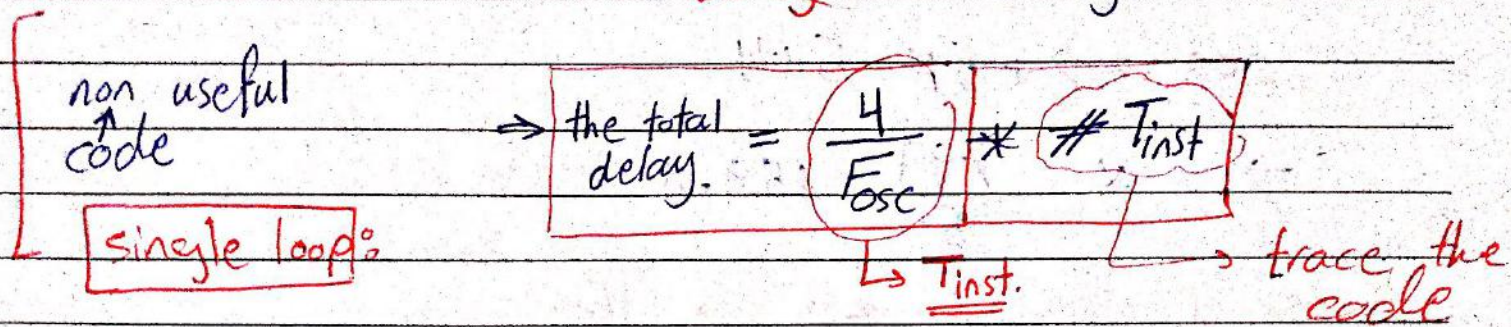 non useful
↑
code
⇒ the total delay. = 4 / Fosc * # Tinst
single loop:
↳ Tinst.
→ trace the code